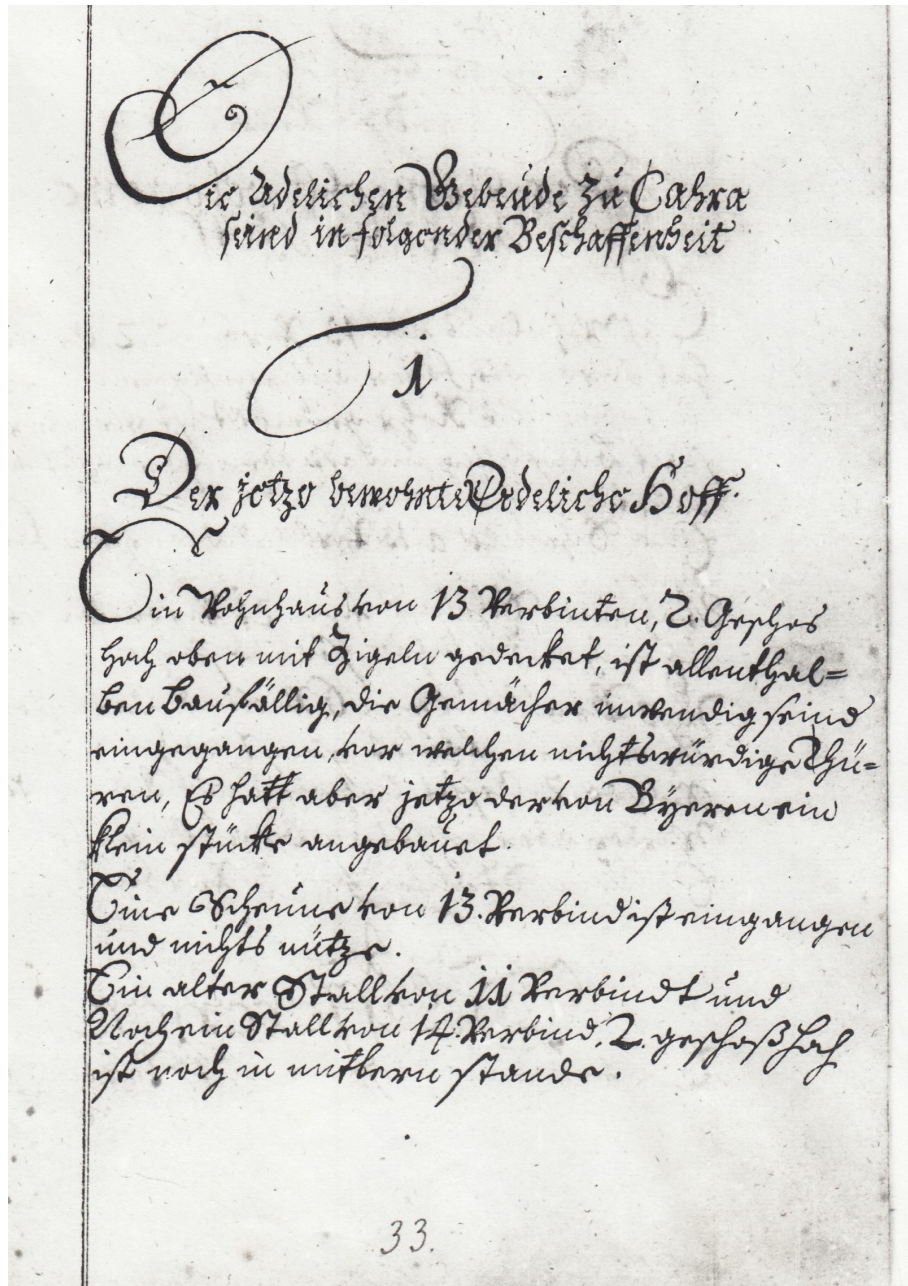 Die Adelichen Gebeude zu Cahra
seind in folgender Beschaffenheit
1
Der jetzo bewohnte Adeliche Hoff.
Ein Wohnhaus von 13 Verbinten, 2. Geschos
hoch oben mit Zigeln gedecket, ist allenthal=
ben Baufällig, die Gemächer inwendig seind
eingegangen, vor welchen nichtswürdige Thü=
ren, Es hatt aber jetzo der von Byeren ein
klein stücke angebauet.
Eine Scheune von 13. Verbind ist eingangen
und nichts nütze.
Ein alter Stall von 11 Verbindt und
Noch ein Stall von 14. Verbind, 2. geschoß hoch
ist noch in mitlern stande.
33.